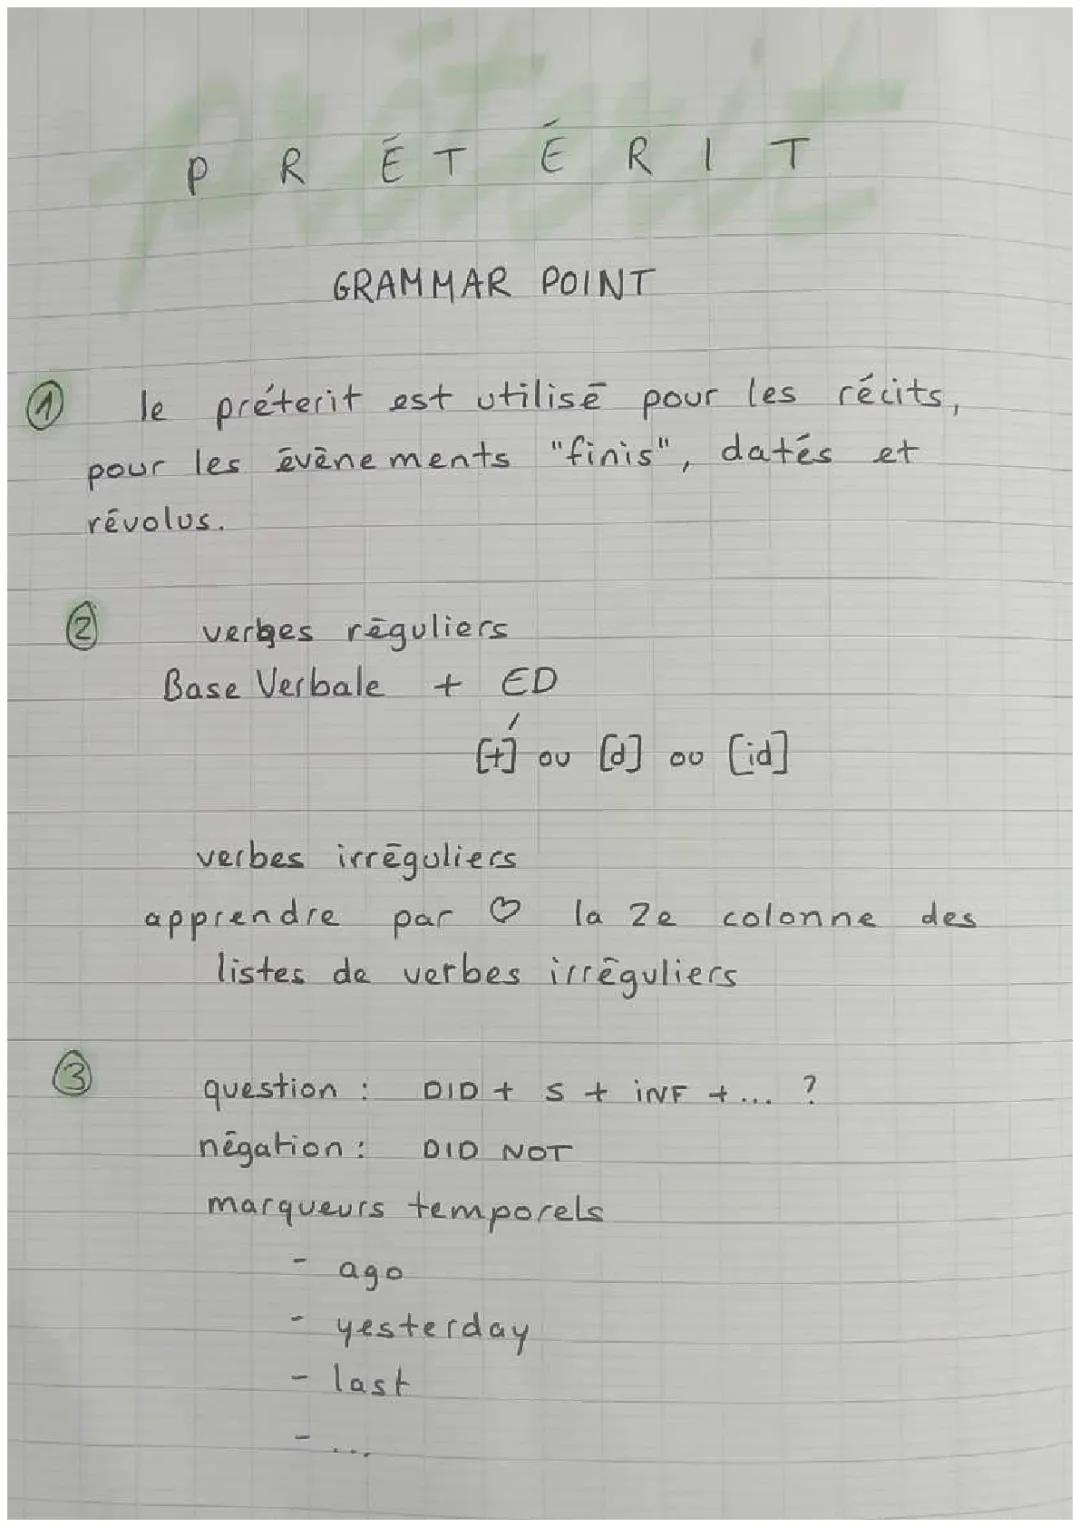 prétérit
P R É T É R I T
GRAMMAR POINT
① le préterit est utilisé pour les récits,
pour les évènements "finis", datés et
révolus.
② verbes réguliers
Base Verbale + ED
[t] ou [d] ou [id]
verbes irréguliers
apprendre par ♡ la 2e colonne des
listes de verbes irréguliers
③ question : DID + S + INF + ... ?
négation : DID NOT
marqueurs temporels
- ago
- yesterday
- last
- ...